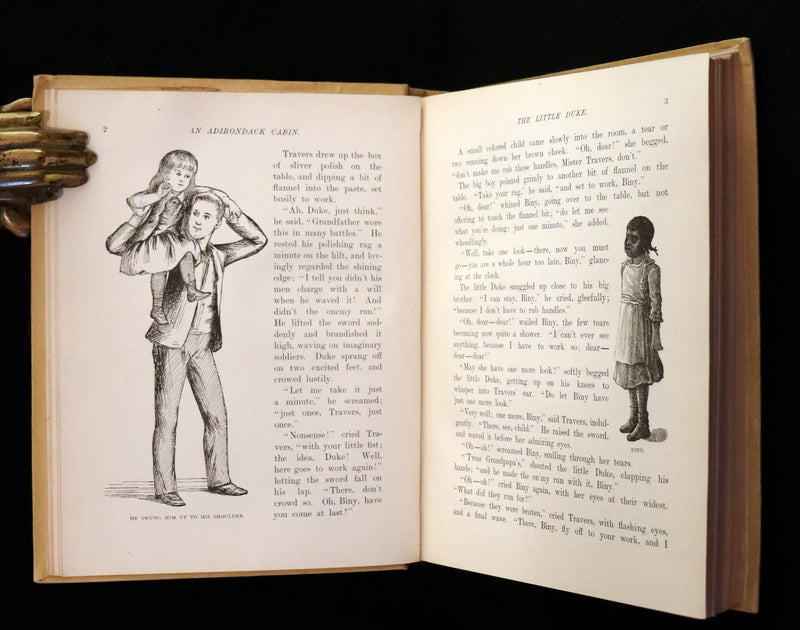 2
AN ADIRONDACK CABIN.
Travers drew up the box
of sliver polish on the
table, and dipping a bit of
flannel into the paste, set
busily to work.
"Ah, Duke, just think,"
he said, "Grandfather wore
this in many battles." He
rested his polishing rag a
minute on the hilt, and lov-
ingly regarded the shining
edge; "I tell you didn't his
men charge with a will
when he waved it! And
didn't the enemy run!"
He lifted the sword sud-
denly and brandished it
high, waving on imaginary
soldiers. Duke sprang off
on two excited feet, and
crowed lustily.
"Let me take it just
a minute," he screamed;
"just once, Travers, just
once."
"Nonsense!" cried Tra-
vers, "with your little fist;
the idea, Duke! Well,
here goes to work again!"
letting the sword fall on
his lap. "There, don't
crowd so. Oh, Biny, have
you come at last?"
HE SWUNG HIM UP TO HIS SHOULDER.
THE LITTLE DUKE.
3
A small colored child came slowly into the room, a tear or
two running down her brown cheek. "Oh, dear!" she begged,
"don't make me rub those handles, Mister Travers, don't."
The big boy pointed grimly to another bit of flannel on the
table. "Take your rag," he said, "and set to work, Biny."
"Oh, dear!" whined Biny, going over to the table, but not
offering to touch the flannel bit; "do let me see
what you're doing; just one minute," she added,
wheedlingly.
"Well, take one look—there, now you must
go—you are a whole hour too late, Biny," glanc-
ing at the clock.
The little Duke snuggled up close to his big
brother. "I can stay, Biny," he cried, gleefully;
"because I don't have to rub handles."
"Oh, dear—dear!" wailed Biny, the few tears
becoming now quite a shower. "I can't ever see
anything, because I have to work so; dear—
dear—dear!"
"May she have one more look!" softly begged
the little Duke, getting up on his knees to
whisper into Travers' ear. "Do let Biny have
just one more look."
"Very well; one more, Biny," said Travers, indul-
gently. "There, see, child." He raised the sword,
and waved it before her admiring eyes.
"Oh—oh!" screamed Biny, smiling through her tears.
"'Twas Grandpapa's," shouted the little Duke, clapping his
hands; "and he made the en'my run with it, Biny."
"Oh—oh!" cried Biny again, with her eyes at their widest.
"What did they run for?"
"Because they were beaten," cried Travers, with flashing eyes,
and a final wave. "There, Biny, fly off to your work, and I
BINY.